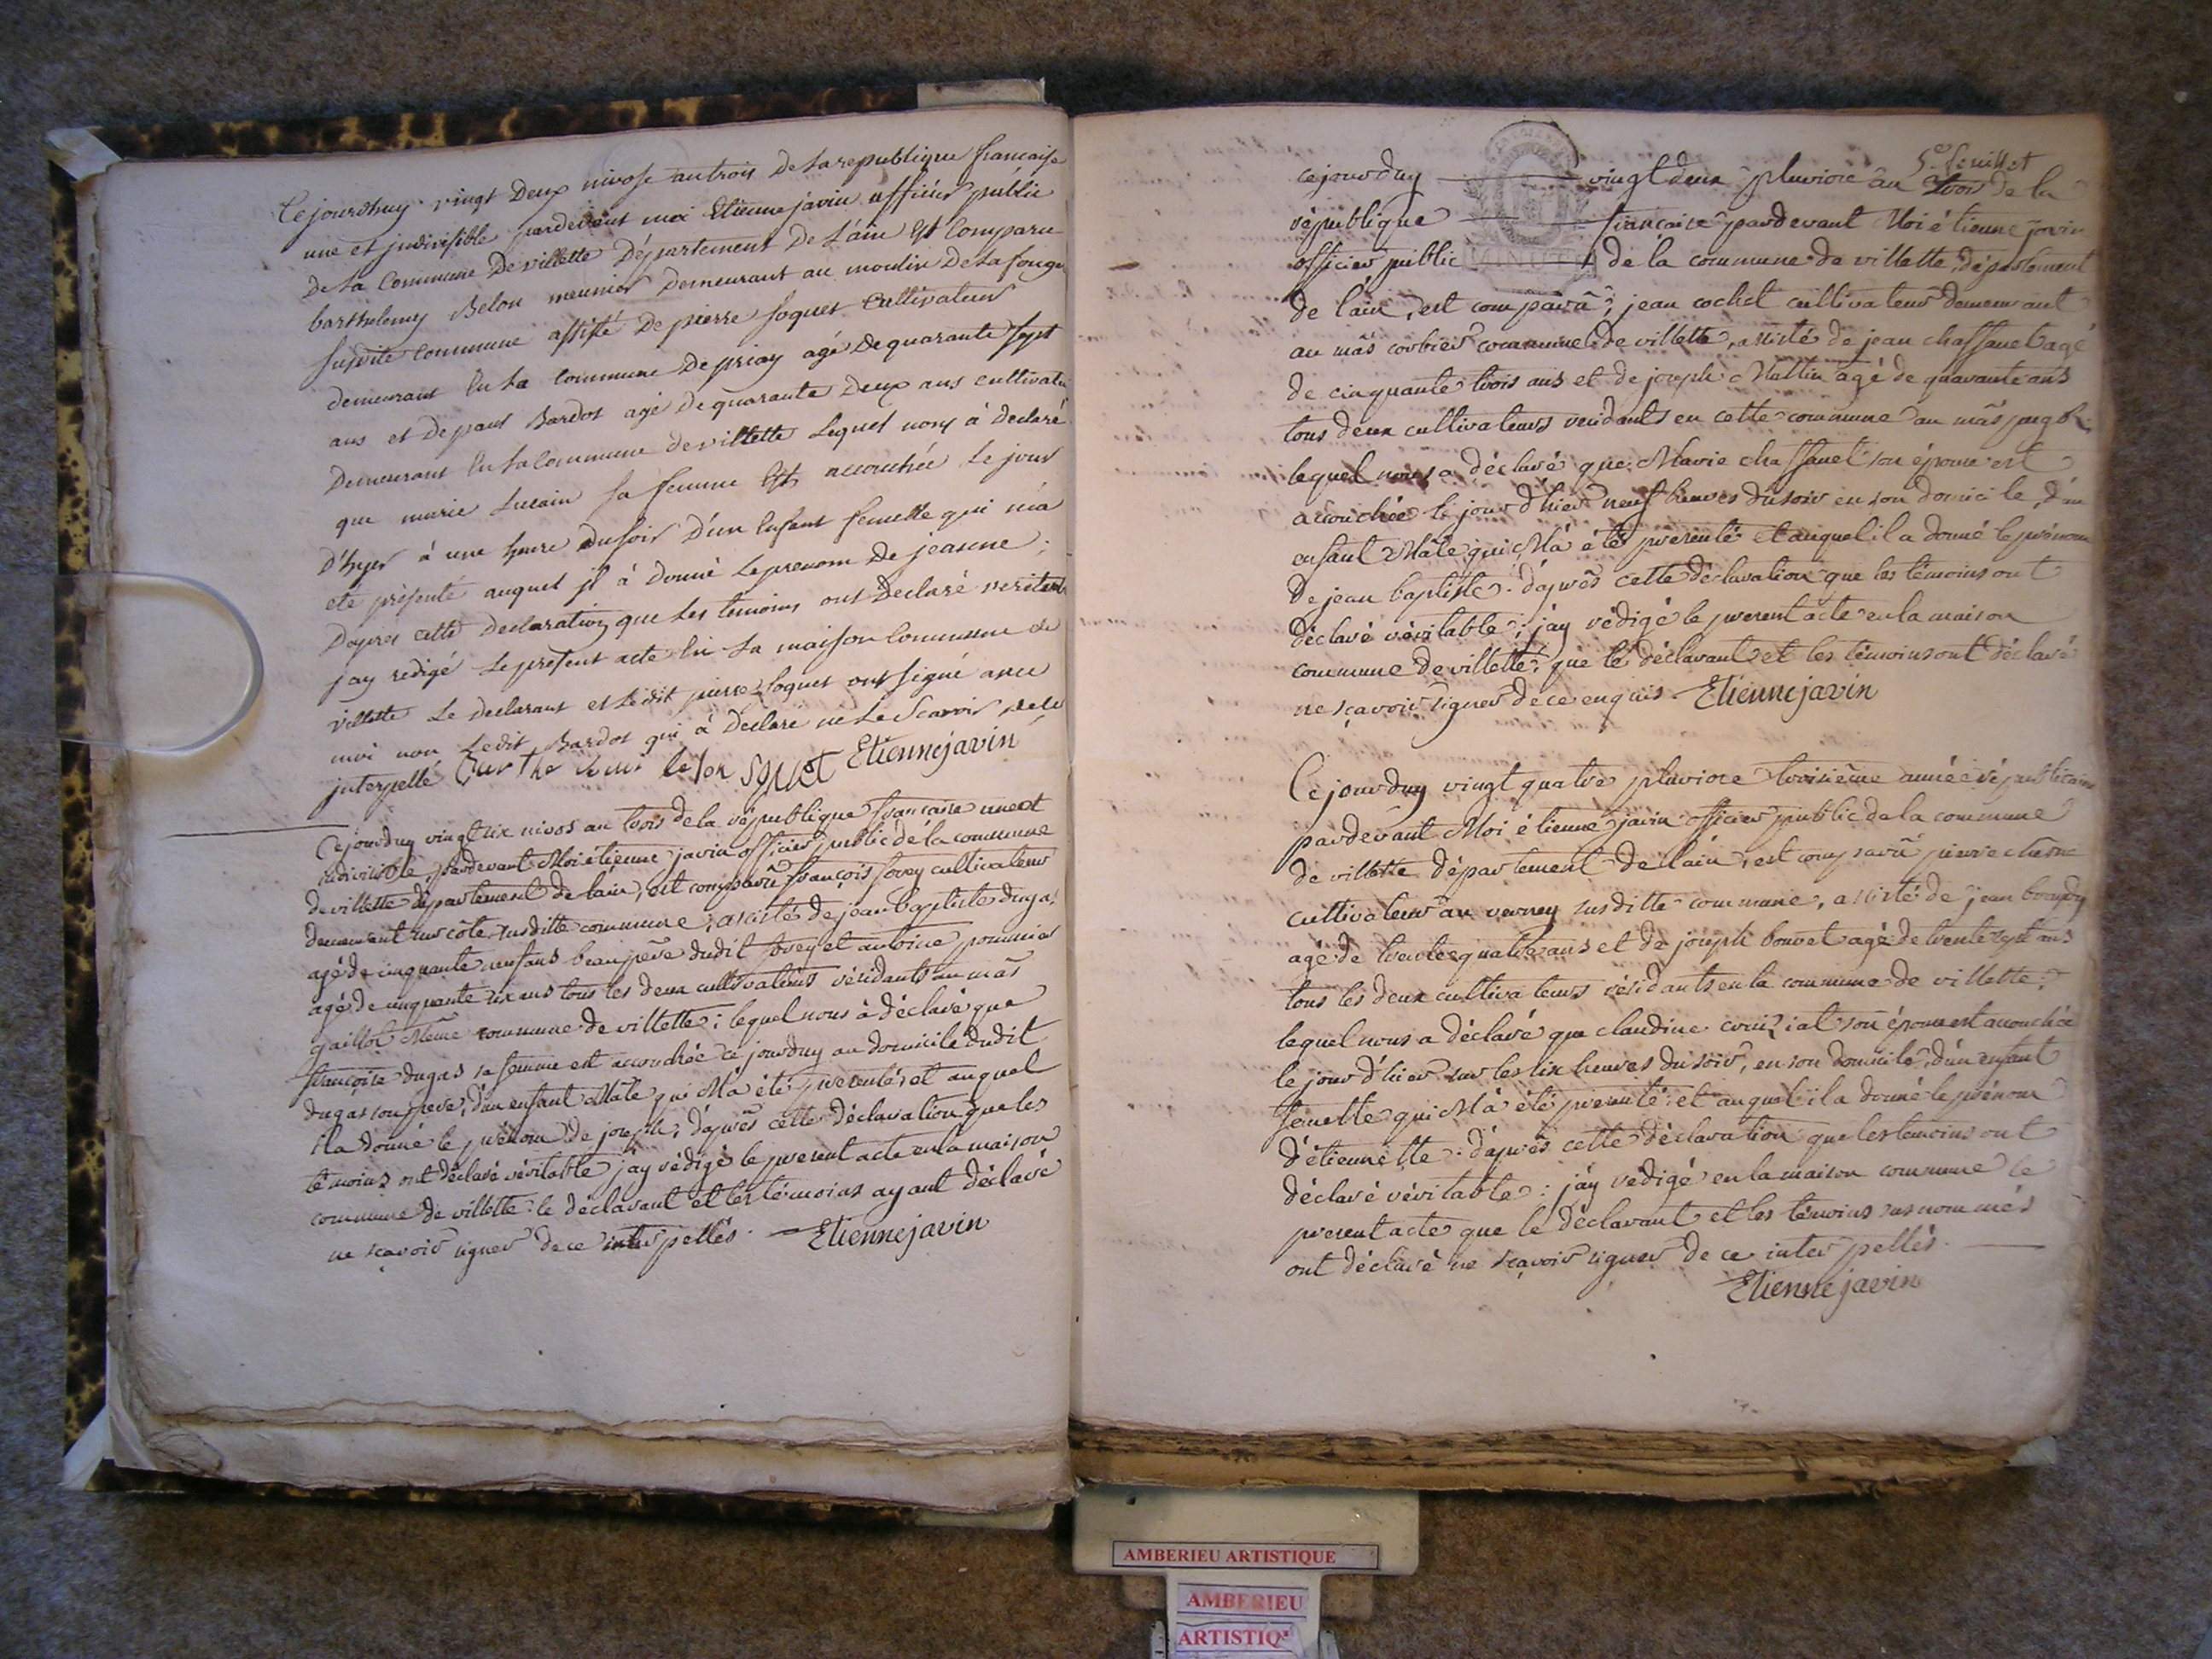 Cejourdhuy vingt Deux nivose an trois De La republique francaise
une et jndivisible pardevant moi Etienne javin officiér públic
De La Commune De villette Département De L'ain Est Comparu
barthelemy Belon meunier Demeurant au moulin De La
susdite Commune assisté De pierre soquet Cultivateur
demeurant En La Commune De priay agé De quarante sept
ans et De paul Bardot agé De quarante Deux ans cultivateur
Demeurant En La Commune De villette Lequel nous à Declaré
que marie Lucain sa femme Est accouchée Le jour
D'hyer à une heure du soir D'un Enfant femelle qui m'a
eté présenté auquel jl à Donné Le prenom De jeanne;
Dapres cette Declaration que Les temoins ont Declaré veritable
jay redigé Le present acte En La maison Commune de
villette Le Declarant et Ledit pierre soquet ont signé avec
moi non Ledit Bardot qui à Declaré ne Le Scavoir de ce
jnterpellé Barthelemi belon soquet Etienne javin
Cejourduy vingt six nivos an trois de la république française une et
indivisible, pardevant Moi étienne javin officier public de la commune
de villette département de lain, est comparû françois forey cultivateur
demeurant sur côte susditte commune, assisté de jean baptiste dugas
agé de cinquante neuf ans beaupère dudit forey et antoine pommier
agé de cinquante six ans tous les deux cultivateurs résidants au mâs
gaillot Même commune de villette; lequel nous à déclaré que
françoise dugas sa femme est accouchée ce jourduy au domicile dudit
dugas son pere, d'un enfant Mâle qui M'a été presentés et auquel
il a donné le prénom de joseph; d'après cette déclaration que les
témoins ont déclaré véritable j'ay rédigé le present acte en la maison
commune de villette: le déclarant et les témoins ayant déclaré
ne sçavoir signer de ce interpellés. Etienne javin
5e feuillet
cejourduy vingt deux pluviose an trois de la
république française pardevant Moi étienne javin
officier public de la commune de villette, département
de l'ain, est comparû; jean cochet cultivateur demeurant
au mâs corbier commune de villette, assisté de jean chassanet agé
de cinquante trois ans et de joseph Mattin agé de quarante ans
tous deux cultivateurs residants en cette commune au mâs
lequel nous a déclaré que Marie chassanet son épouse est
accouchée le jour d'hier neuf heures du soir en son domicile, d'un
enfant Mâle qui M'a été presenté et auquel il a donné le prénom
de jean baptiste. d'après cette déclaration que les témoins ont
déclaré véritable; j'ay rédigé le present acte en la maison
commune de villette; que le déclarant et les témoins ont déclaré
ne sçavoir signer de ce enquis. Etienne javin
Cejourduy vingt quatre pluviose troisième année républicaine
pardevant Moi étienne javin officier public de la commune
de villette département de l'ain, est comparû pierre chêne
cultivateur au verney susditte commune, assisté de jean bondy
agé de trente quatre ans et de joseph bouvet agé de trente sept ans
tous les deux cultivateurs résidants en la commune de villette;
lequel nous a déclaré que claudine son épouse est accouchée
le jour d'hier sur les six heures du soir, en son domicile, d'un enfant
femelle qui M'a été presenté; et auquel il a donné le prénom
d'étiennette. d'après cette déclaration que les temoins ont
déclaré véritable: j'ay rédigé en la maison commune le
present acte que le déclarant et les témoins susnommés
ont déclaré ne sçavoir signer de ce interpellés.
Etienne javin
MINUTE
AMBERIEU ARTISTIQUE
AMBERIEU
ARTISTIQ